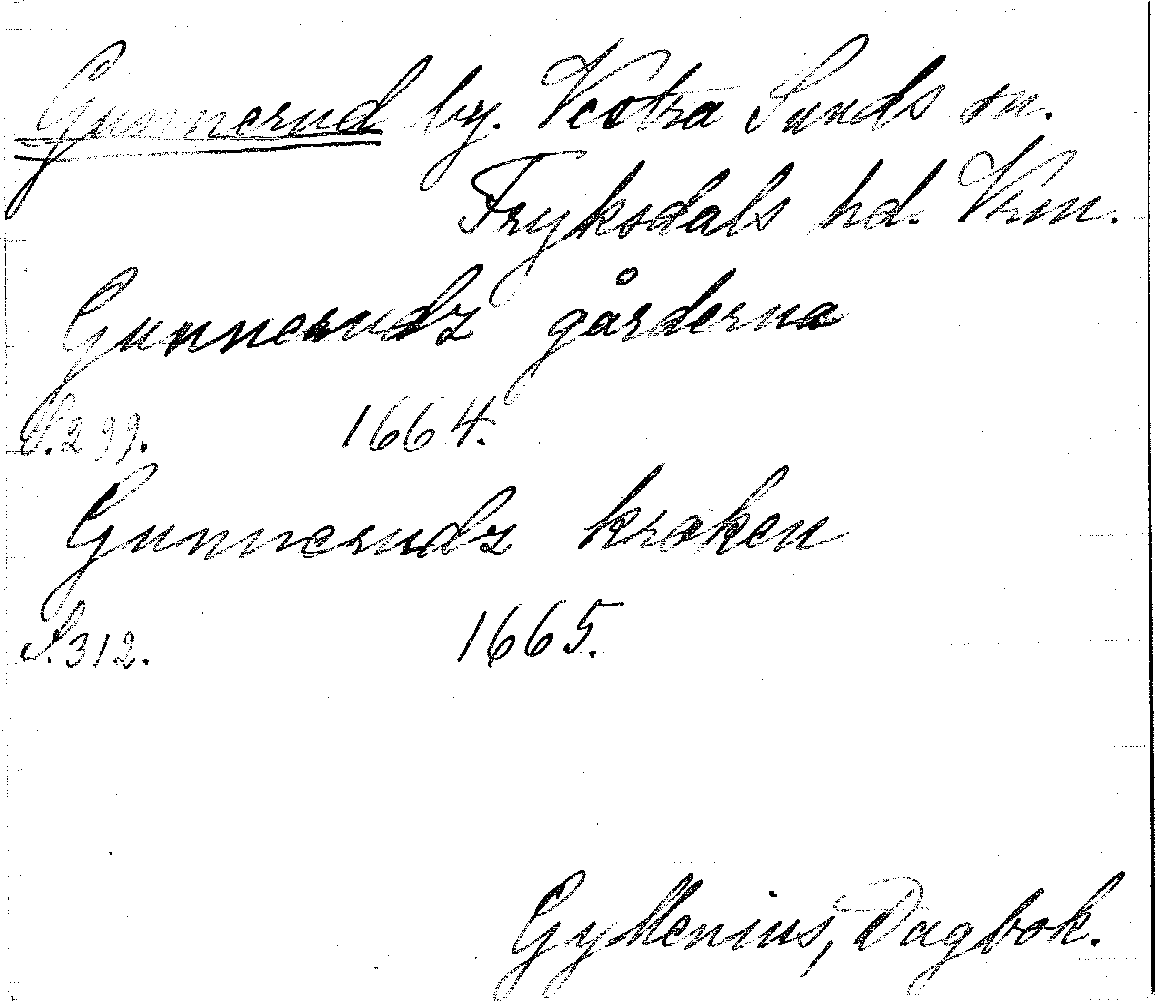 Gunnerud by. Vestra Sunds sn.
Fryksdals hd. Vrm.
Gunnerudz gårderna
S. 299. 1664.
Gunnerudz kroken
S. 312. 1665.
Gyllenius, Dagbok.